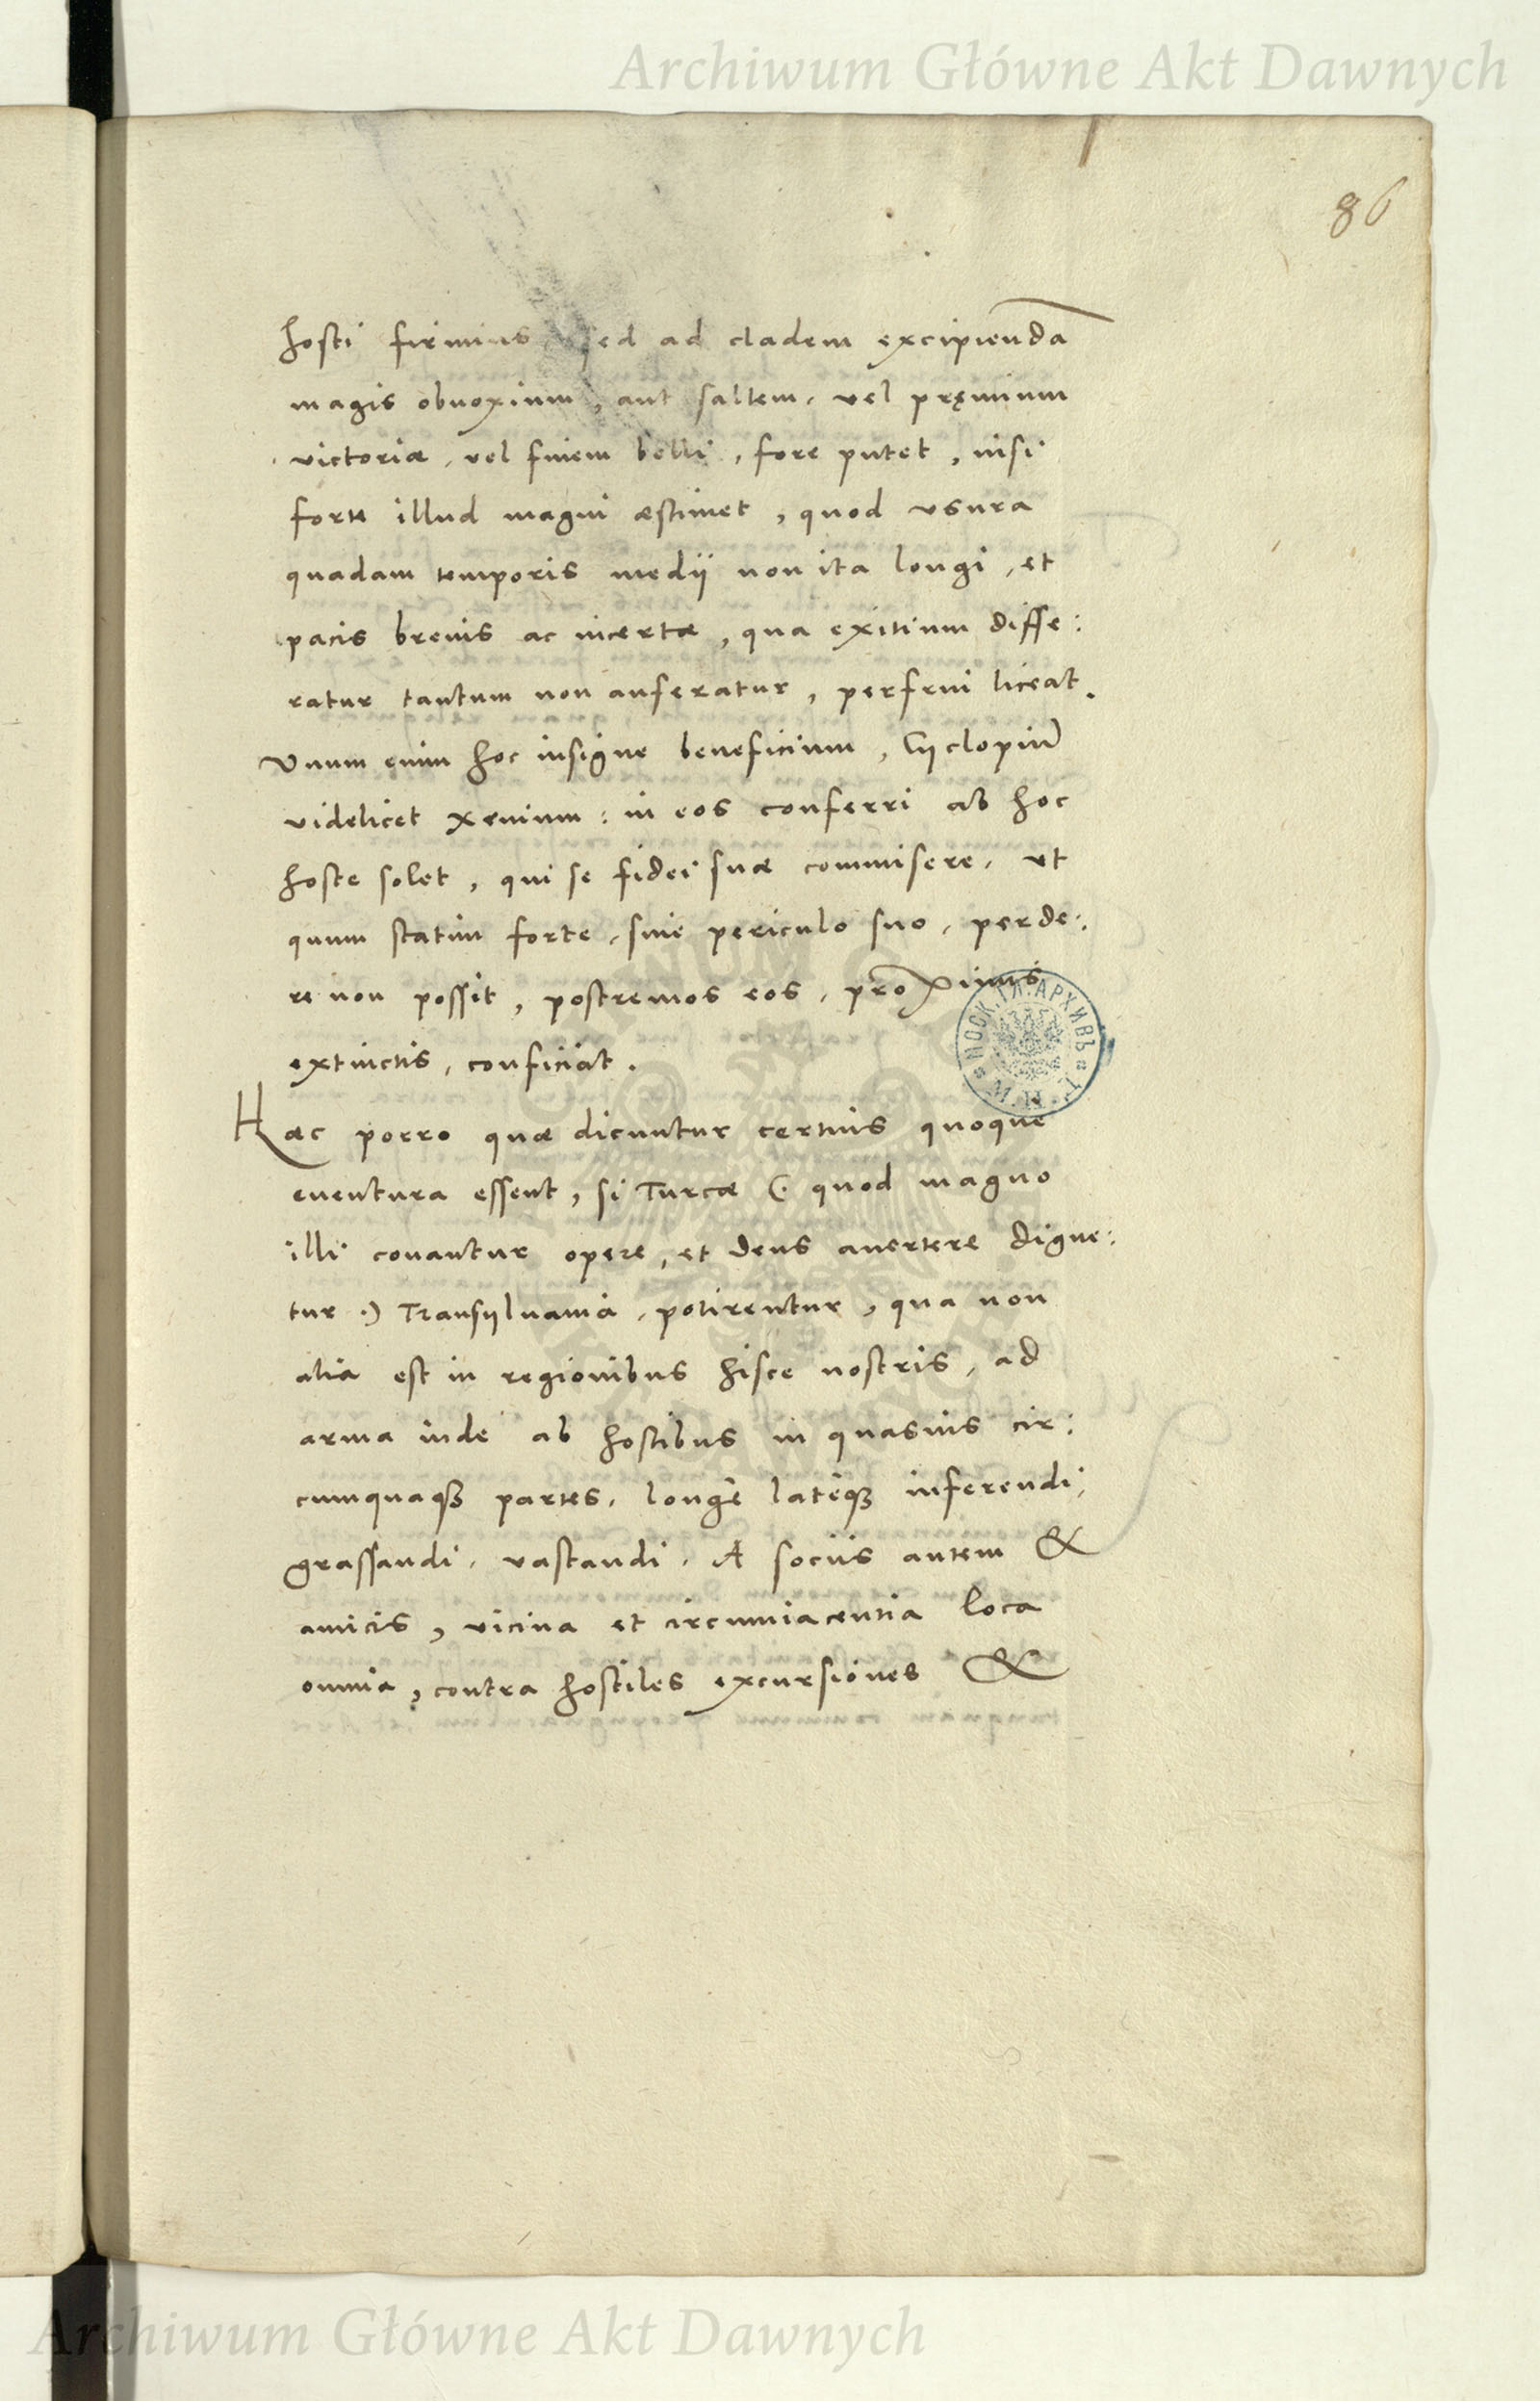 Archiwum Główne Akt Dawnych
86
hosti firmius sed ad cladem excipiendā
magis obnoxium, aut saltem, vel pręmium
victoriæ, vel finem belli, fore putet, nisi
forte illud magni æstimet, quod vsura
quadam temporis medij non ita longi, et
pacis breuis ac incertæ, qua exitium diffe:
ratur tantum non auferatur, perfrui liceat.
Vnum enim hoc insigne beneficium, Cyclopiū
videlicet xenium: in eos conferri ab hoc
hoste solet, qui se fidei suæ commisere, vt
quum statim forte, sine periculo suo, perde:
re non possit, postremos eos, proximis
extinctis, conficiat.
Hæc porro quæ dicuntur certius quoque
euentura essent, si Turcæ (. quod magno
illi conantur opere, et deus auertere digne:
tur .) Transyluania, potirentur, qua non
alia est in regionibus hisce nostris, ad
arma inde ab hostibus in quasuis cir:
cumquaqȝ partes, longè latèqȝ inferendi,
grassandi, vastandi. A socijs autem &
amicis, vicina et circumiacentia loca
omnia, contra hostiles excursiones &
МОСК. ГЛ. АРХИВЪ
Archiwum Główne Akt Dawnych